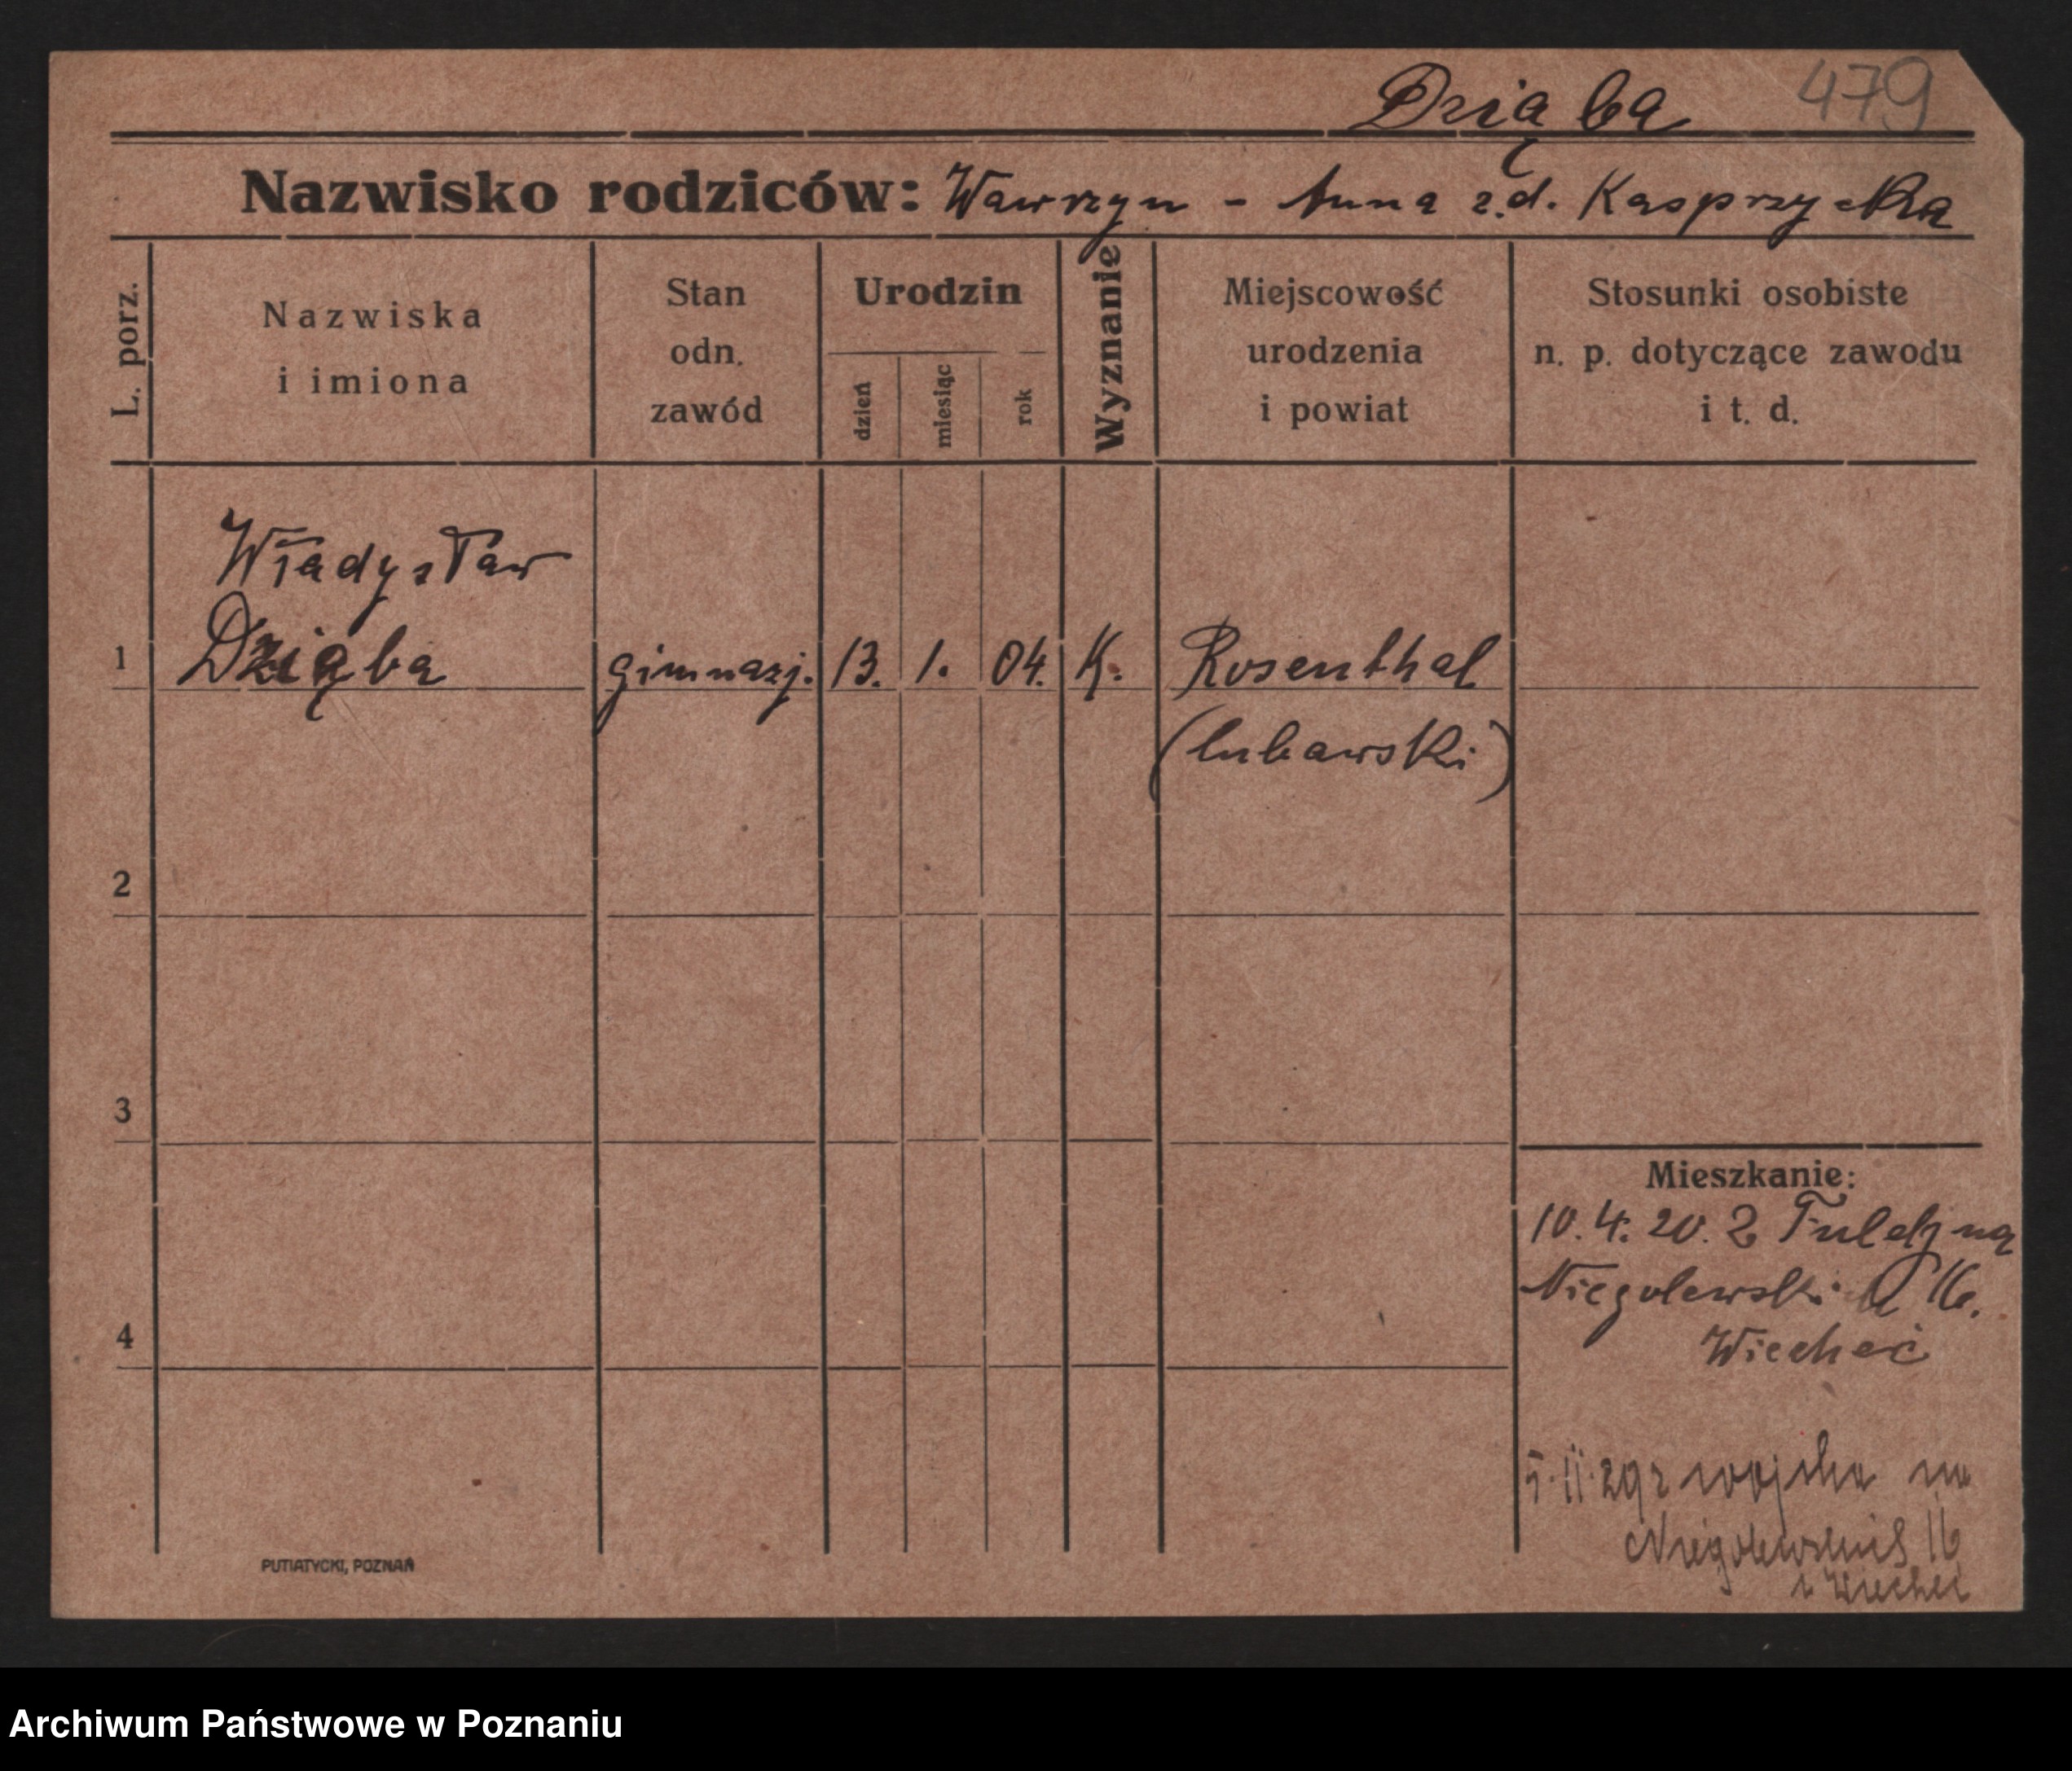 Dziąba 479
Nazwisko rodziców: Wawrzyn - Anna z.d. Kasprzycka
L. porz.
Nazwiska
i imiona
Stan
odn.
zawód
Urodzin
dzień
miesiąc
rok
Wyznanie
Miejscowość
urodzenia
i powiat
Stosunki osobiste
n. p. dotyczące zawodu
i t. d.
Władysław
1 Dziąba gimnazj. 13. 1. 04. K. Rosenthal
(lubawski)
2
3
4
Mieszkanie:
10. 4. 20. z na
Niegolewski 16.
Wiecheć
5.11.20 z wojska na
16
Wiecheć
PUTIATYCKI, POZNAŃ
Archiwum Państwowe w Poznaniu